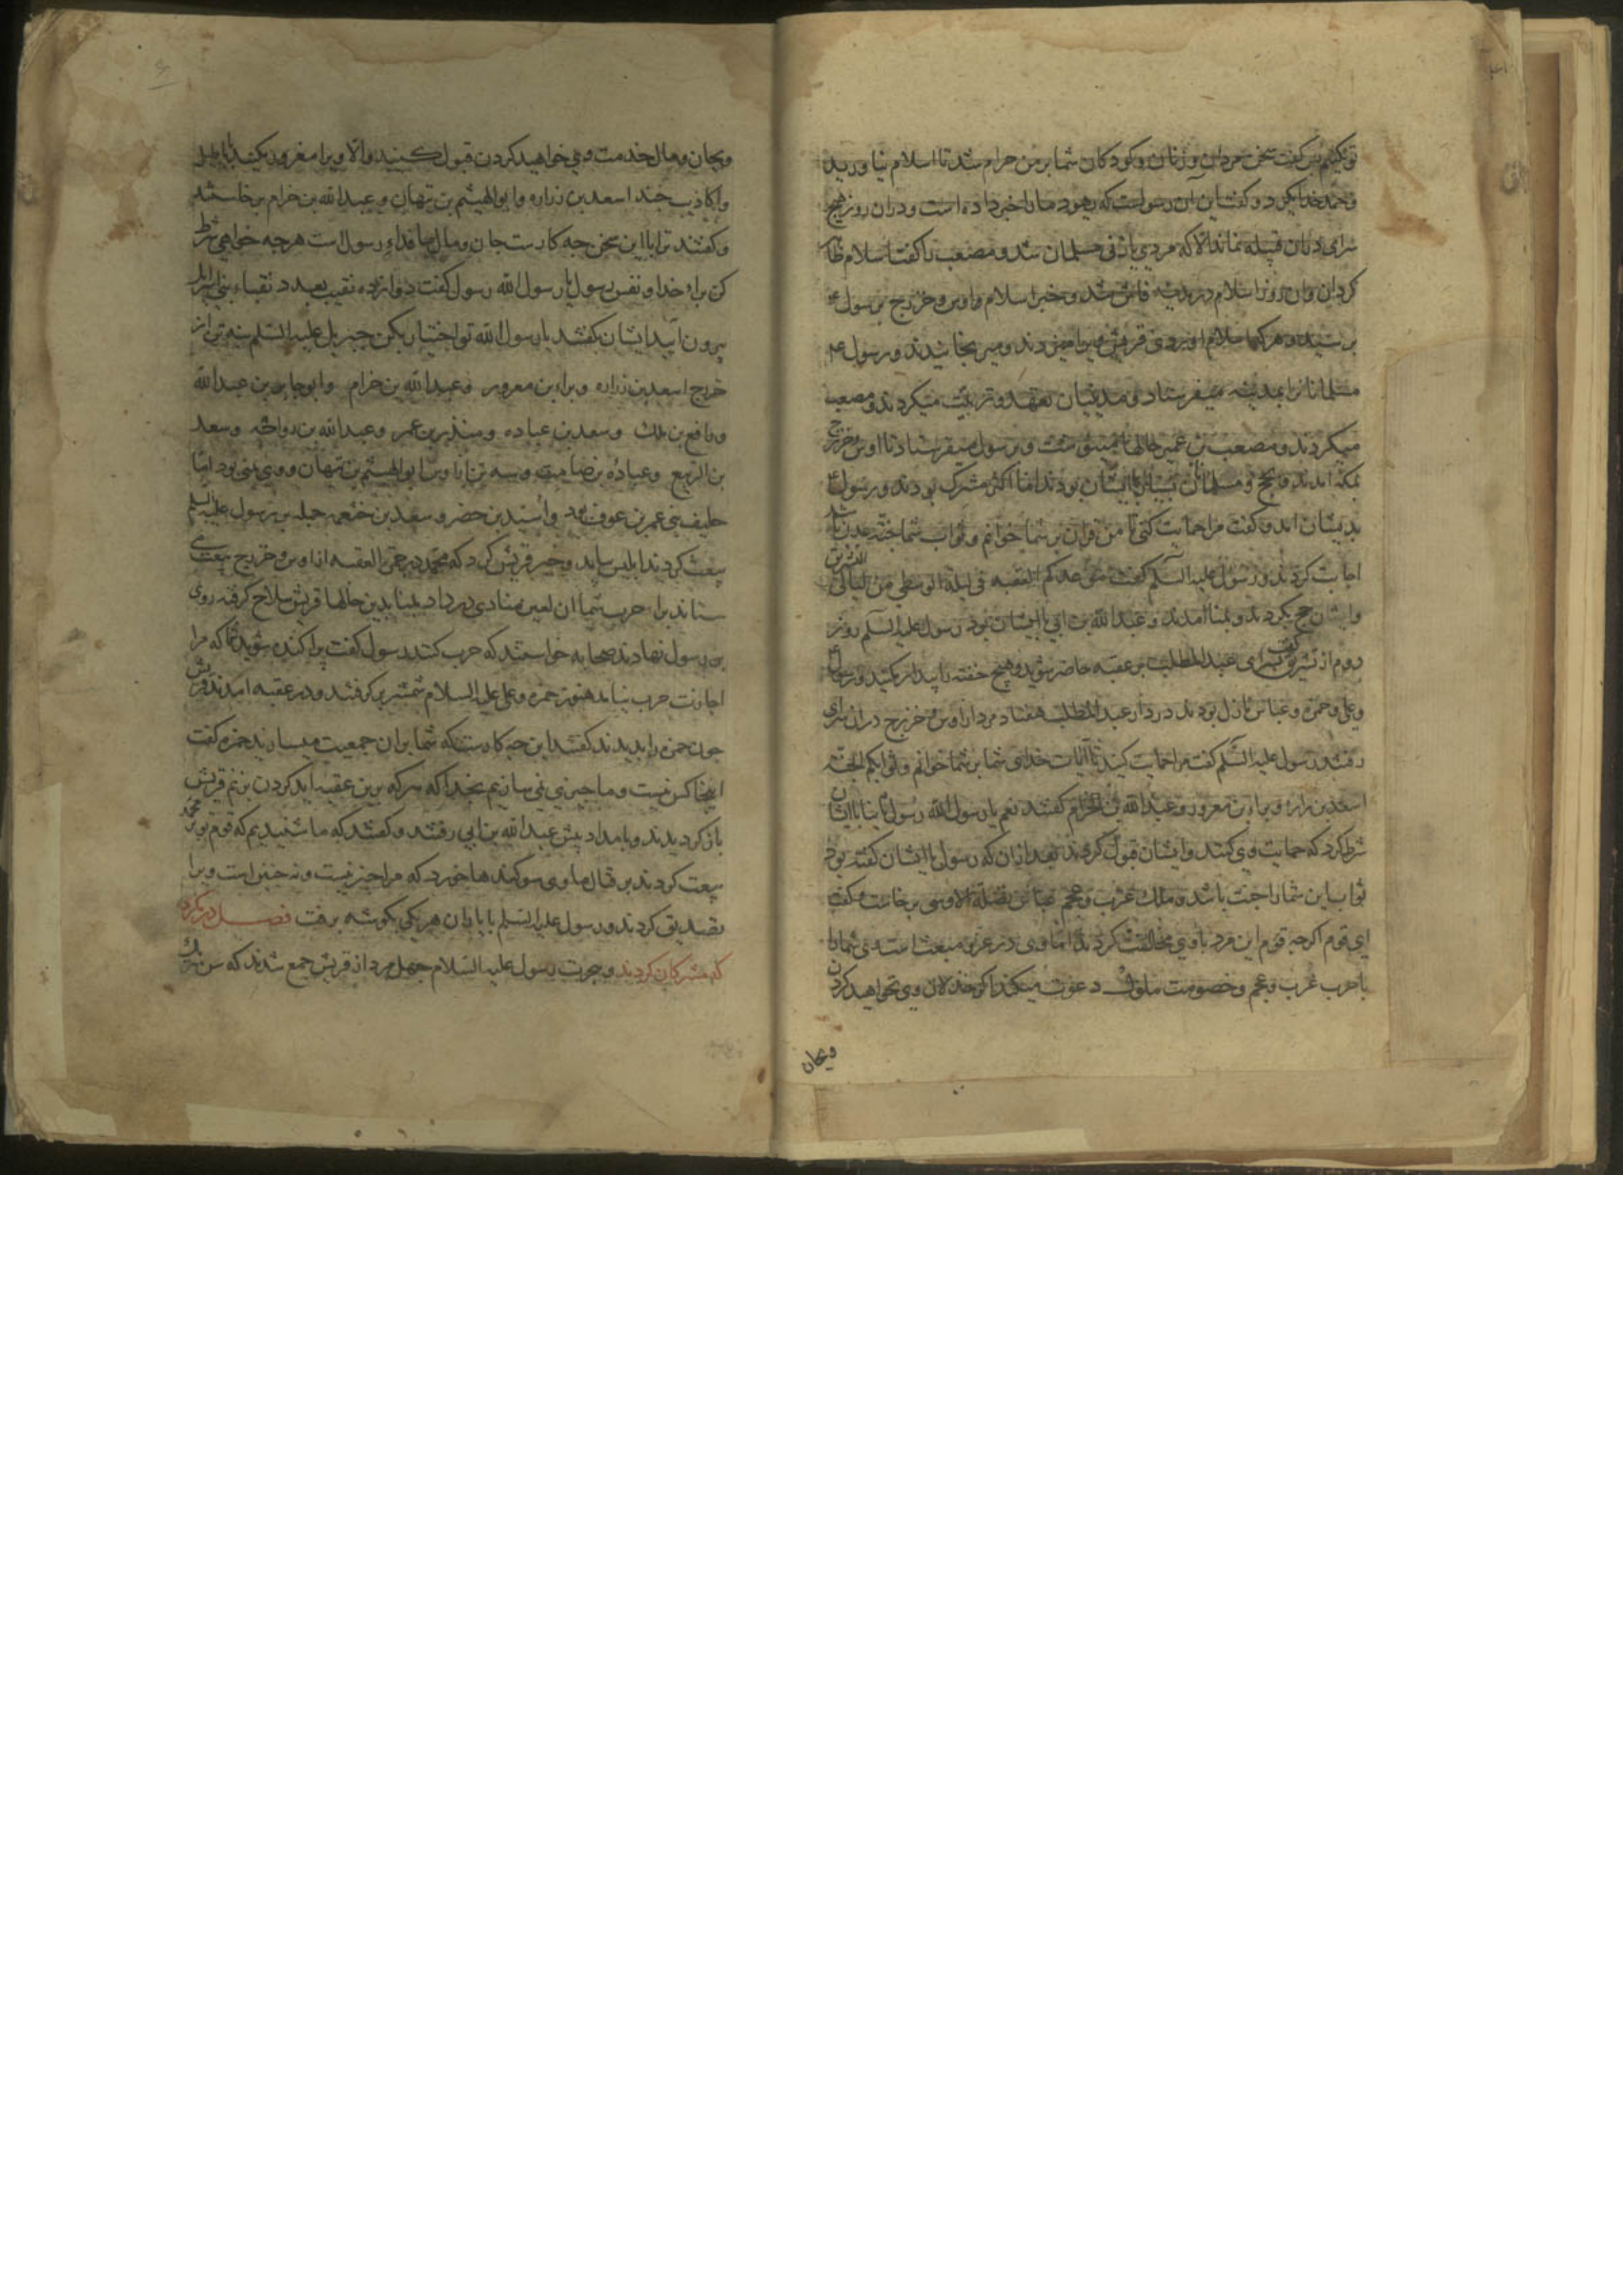 تو نکنیم پس گفت سخن مردان و زنان و کودکان شما بر من حرام شد تا اسلام نیاورید
کرد و گفت این آن رسولست که یهود ما را خبر داده است و در آن روز هیچ
سرای در آن قبیله نماند الا که مردی یا زنی مسلمان شد و مصعب را گفت اسلام ظاهر
کردان و آن روز اسلام در مدینه فاش شد و خبر اسلام اوس و خزرج برسول ع
برسید و هر که اسلام آوردی قریش ویرا میزدند و میرنجانیدند و رسول ع
مسلمانانرا بمدینه میفرستاد و مدنیان تعهد و تربیت میکردند و مصعب
میکردند و مصعب بن عمیر حالها می نوشت و برسول میفرستاد تا اوس و خزرج
بمکه آمدند بحج و مسلمانان بسیار با ایشان بودند اما اکثر مشرک بودند و رسول ع
بدیشان آمد و گفت مرا حمایت کنی تا من قرآن بر شما خوانم و ثواب شما جنة عدن باشد
اجابت کردند و رسول علیه السلم گفت موعدکم العقبه فی لیلة الوسطی من لیالی التشریق
و ایشان حج بکردند و بمنا آمدند و عبدالله بن ابی با ایشان بود رسول علیه السلم روز
دوم از تشریق گفت بسرای عبد المطلب بر عقبه حاضر شوید و هیچ خفته را بیدار مکنید و رسول ع
و علی و حمزه و عباس نازل بودند در دار عبد المطلب هفتاد مرد از اوس و خزرج در آن سرای
رفتند رسول علیه السلم گفت مرا حمایت کنید تا آیات خدای شما بر شما خوانم و ثوابکم الجنة
اسعد بن زراره و براء بن معرور و عبد الله بن الحرام گفتند نعم یا رسول الله رسول با ایشان
شرط کرد که حمایت وی کنند و ایشان قبول کردند بعد از آن که رسول با ایشان گفته بود
ثواب این شما را جنت باشد و ملک عرب و عجم عباس بن نضلة الاوسی برخاست و گفت
ای قوم اگرچه قوم این مرد با وی مخالفت کردند اما وی در عز و منعت است می شما را
با حرب عرب و عجم و خصومت ملوک دعوت میکند اگر خذلان وی نخواهید کردن
وبجان
وبجان و مال خدمت وی خواهید کردن قبول کنید والا ویرا مغرور مکنید باباطیل
و اکاذیب چند اسعد بن زراره و ابو الهیثم بن تیهان و عبد الله بن حرام برخاستند
و گفتند ترا با این سخن چه کارست جان و مال ما فداء رسول است هر چه خواهی شرط
کن براء خدا و نفس رسول یا رسول الله رسول گفت دوازده نقیب بعدد نقباء بنی اسرائیل
بیرون آیید ایشان گفتند یا رسول الله تو اختیار بکن جبریل علیه السلم نه تن از
خزرج اسعد بن زراره و براء بن معرور و عبد الله بن حرام و ابو جابر بن عبد الله
و رافع بن ملک و سعد بن عباده و منذر بن عمر و عبد الله بن رواحه و سعد
بن الربیع و عباده بن صامت و سه تن از اوس ابو الهیثم بن تیهان و وی یمنی بود اما
حلیف بنی عمر بن عوف بود و اسید بن حضیر و سعد بن خثعمه جمله بر رسول علیه السلم
بیعت کردند ابلیس بیامد و خبر قریش کرد که محمد در حق العقبه از اوس و خزرج بیعت
ستاند براء حرب شما آن لعین منادی درداد بمنا بدین حالها قریش سلاح گرفته روی
بر رسول نهادند صحابه خواستند که حرب کنند رسول گفت پراکنده شوید که مرا
اجازت حرب نیامد هنوز حمزه و علی علیه السلام شمشیر برگرفتند و در عقبه آمدند قریش
چون حمزه را بدیدند گفتند این چه کارست که شما بر آن جمعیت میسازید حمزه گفت
اینجا کس نیست و ما چیزی نمی سازیم بخدا که هر که برین عقبه آید گردن بزنم قریش
باز گردیدند و بامداد پیش عبد الله بن ابی رفتند و گفتند که ما شنیدیم که قوم تو با محمد
بیعت کردند بر قتال ما وی سوگندها خورد که مرا خبر نیست و نه چنین است ویرا
تصدیق کردند و رسول علیه السلم با یاران هر یکی بگوشه برفت فصل در مکری
که مشرکان کردند و هجرت رسول علیه السلام چهل مرد از قریش جمع شدند که سن هر یک